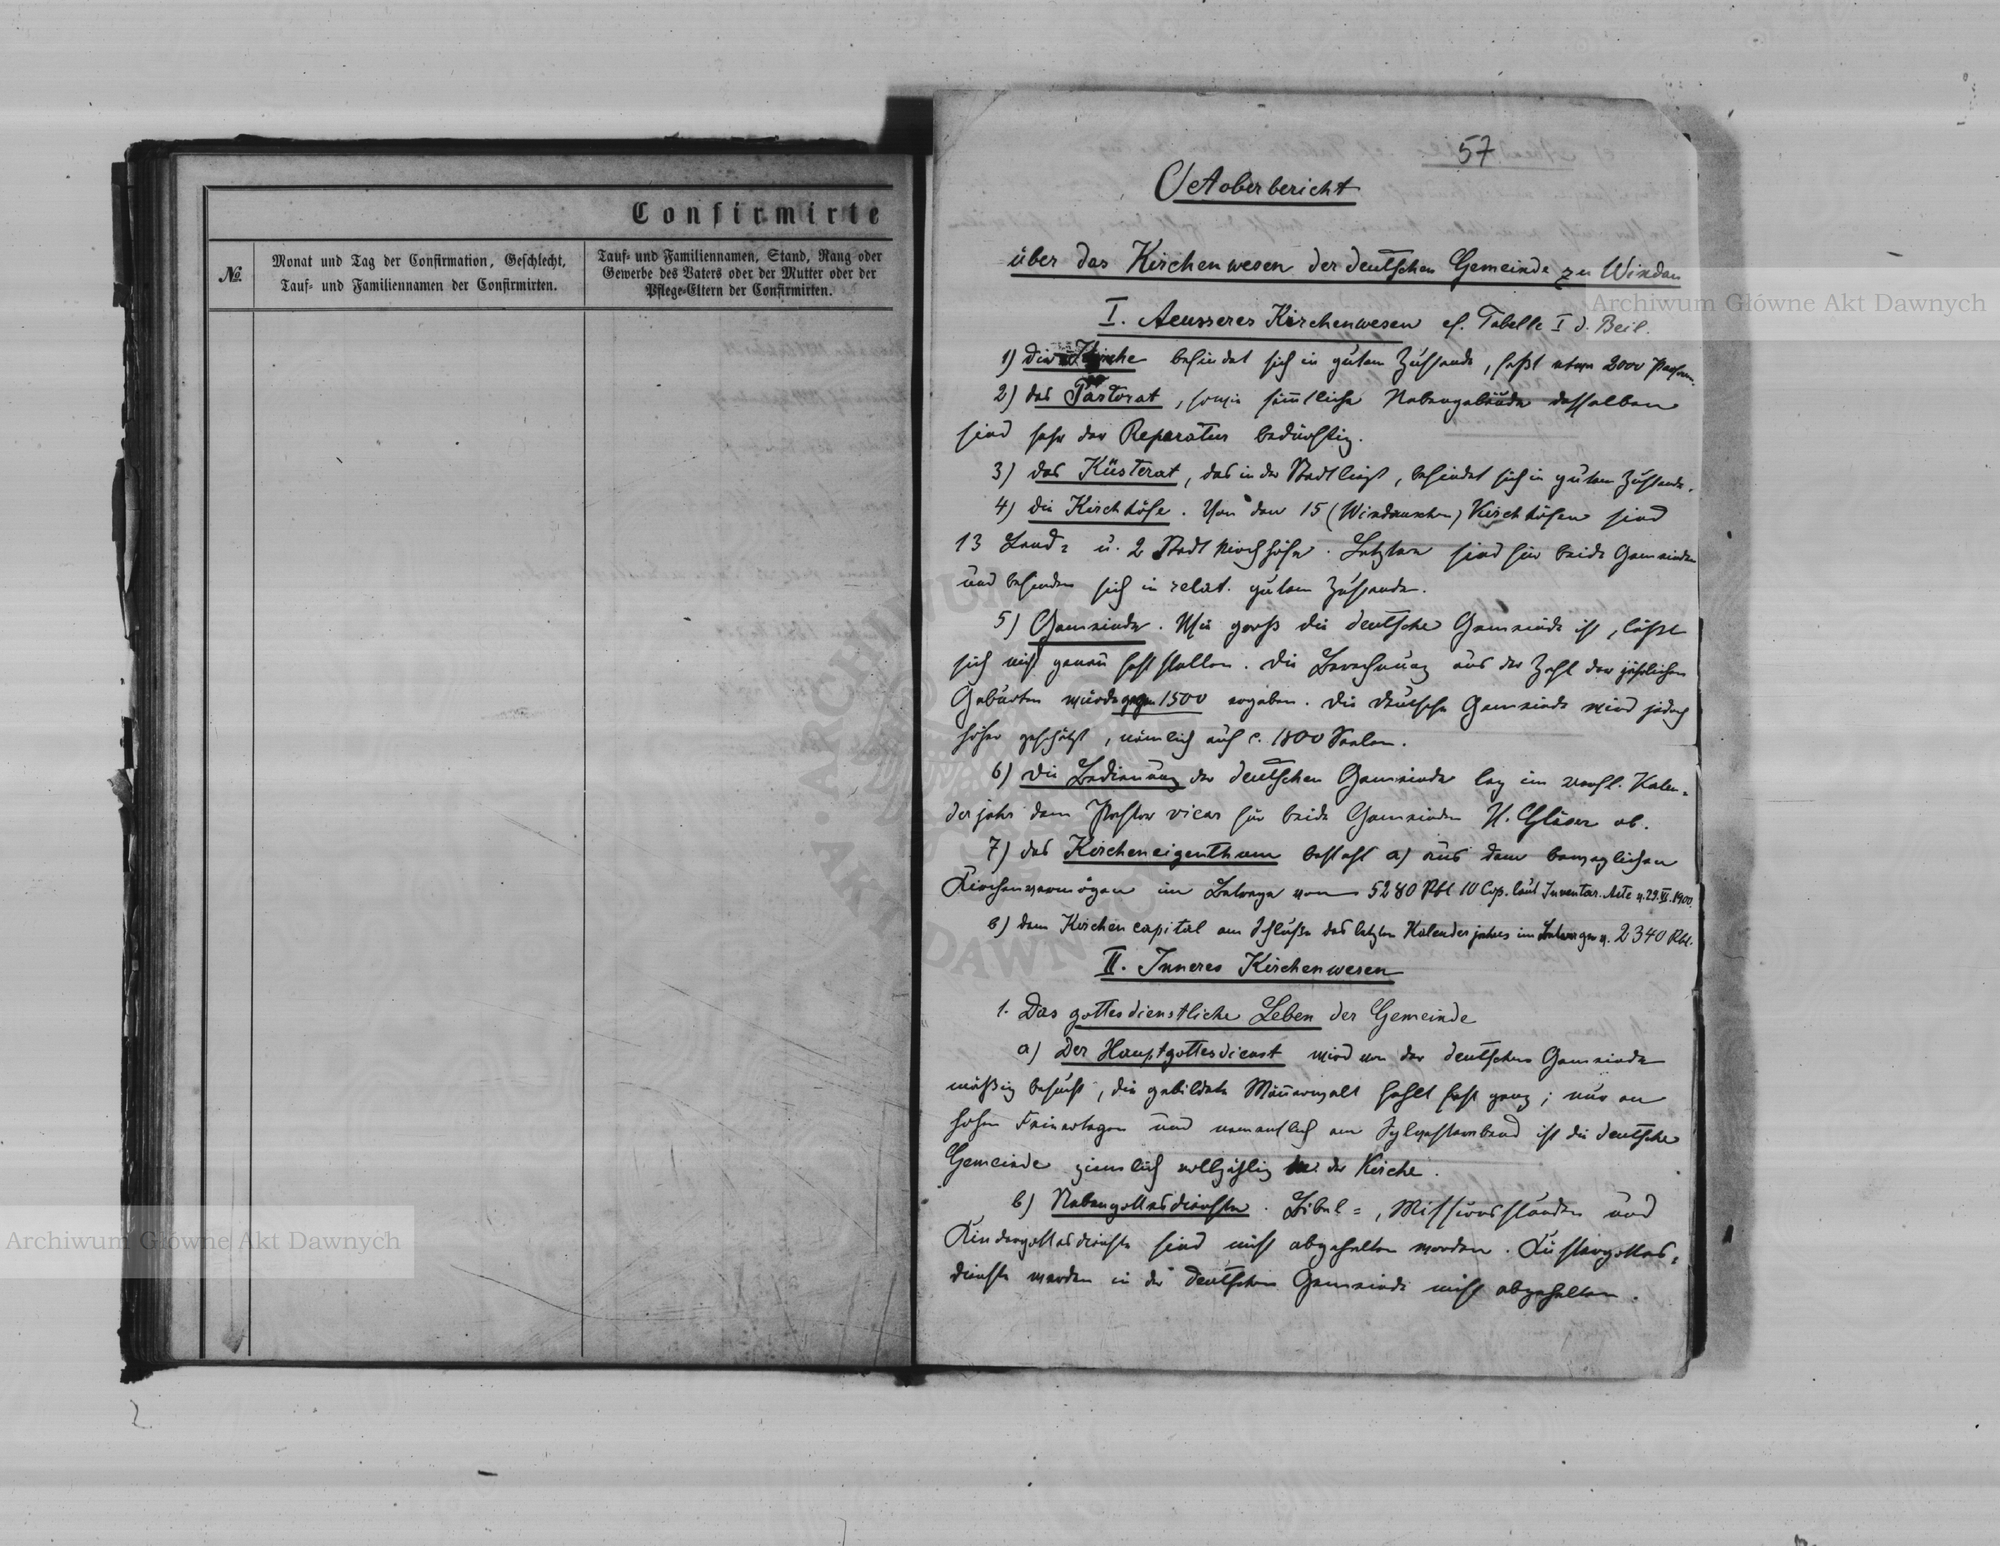 Confirmirte
№
Monat und Tag der Confirmation, Geschlecht,
Tauf- und Familiennamen der Confirmirten.
Tauf- und Familiennamen, Stand, Rang oder
Gewerbe des Vaters oder der Mutter oder der
Pflege-Eltern der Confirmirten.
57
Octoberbericht
über das Kirchenwesen der deutschen Gemeinde zu Windau
I. Aeusseres Kirchenwesen cf. Tabelle I d. Beil.
1) die Kirche befindet sich in gutem Zustande, faßt etwa 2000 Person.
2) das Pastorat, sowie sämtliche Nebengebäude desselben
sind sehr der Reparatur bedürftig.
3) das Küsterat, das in der Stadt liegt, befindet sich in gutem Zustande.
4) die Kirchhöfe. Von den 15 (Windauschen) Kirchhöfen sind
13 Land- u. 2 Stadtkirchhöfe. Letztere sind für beide Gemeinden
und befinden sich in relat. gutem Zustande.
5) Gemeinde. Wie groß die deutsche Gemeinde ist, läßt
sich nicht genau feststellen. Die Berechnung aus der Zahl der jährlichen
Geburten würde gegen 1500 ergeben. Die deutsche Gemeinde wird jedoch
höher geschätzt, nämlich auf c. 1800 Seelen.
6) Die Bedienung der deutschen Gemeinde lag im verfl. Kalen-
derjahr dem Pastor vicar für beide Gemeinden H. Gläser ob.
7) das Kircheneigenthum besteht a) aus dem beweglichen
Kirchenvermögen im Betrage von 5280 Rbl 10 Cop. laut Inventar. Acte v. 29. VI. 1900.
b) dem Kirchencapital am Schluße des letzten Kalenderjahres im Betrage v. 2340 Rbl.
II. Inneres Kirchenwesen
1. Das gottesdienstliche Leben der Gemeinde
a) Der Hauptgottesdienst wird von der deutschen Gemeinde
mäßig besucht, die gebildete Männerwelt fehlt fast ganz; nur an
hohen Feiertagen und namentlich am Sylvesterabend ist die deutsche
Gemeinde ziemlich vollzählig in der Kirche.
b) Nebengottesdienste. Bibel-, Missionsstunden und
Kindergottesdienste sind nicht abgehalten worden. Küstergottes-
dienste werden in der deutschen Gemeinde nicht abgehalten.
Archiwum Główne Akt Dawnych
Archiwum Główne Akt Dawnych